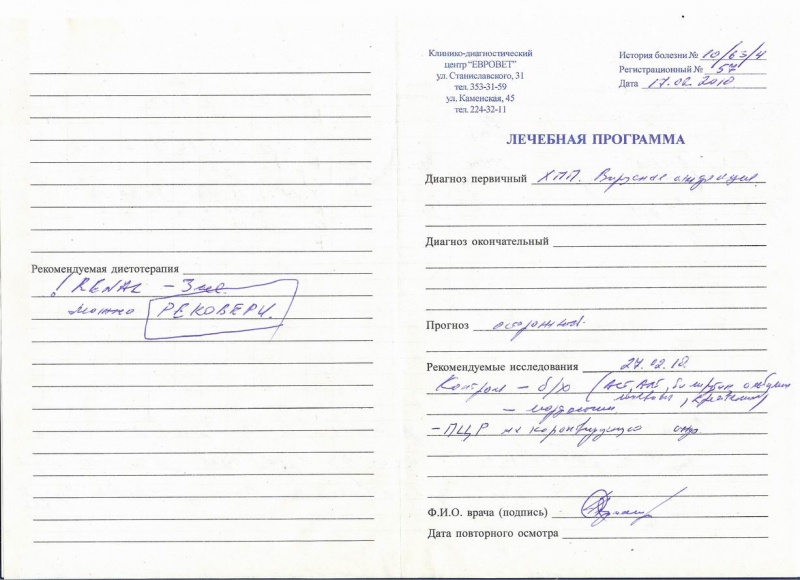 Рекомендуемая диетотерапия
! RENAL – 3
можно РЕКОВЕРИ.
Клинико-диагностический
центр "ЕВРОВЕТ"
ул. Станиславского, 31
тел. 353-31-59
ул. Каменская, 45
тел. 224-32-11
История болезни № 10/63/4
Регистрационный № 57
Дата 17.02.2010
ЛЕЧЕБНАЯ ПРОГРАММА
Диагноз первичный ХПП. Вирусная инфекция
Диагноз окончательный
Прогноз осторожный.
Рекомендуемые исследования 27.02.10.
Контроль – б/х (АСТ, АЛТ, билирубин, альбумин
мочевина, креатинин)
– морфология.
– ПЦР на коронавирусную инф
Ф.И.О. врача (подпись)
Дата повторного осмотра